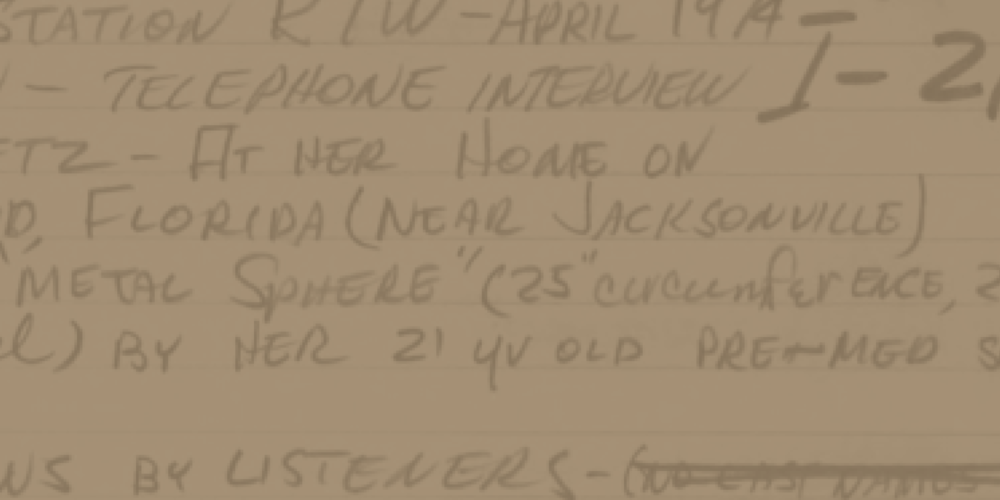 STATION RTW - APRIL 1974 -
- TELEPHONE INTERVIEW 1-2
ETZ - AT HER HOME ON
FLORIDA (NEAR JACKSONVILLE)
"METAL SPHERE" (25" circumferENCE,
) BY HER 21 yr OLD PRE-MED S
BY LISTENERS - (NO LAST NAMES